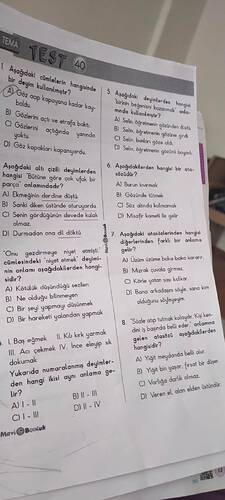 TEMA
TEST 40
1. Aşağıdaki cümlelerin hangisinde
bir deyim kullanılmıştır?
A) Göz açıp kapayana kadar kay-
boldu.
B) Gözlerini açtı ve etrafa baktı.
C) Gözlerini açtığında yanında
yoktu.
D) Göz kapakları kapanıyordu.
Aşağıdaki altı çizili deyimlerden
hangisi "Bütüne göre çok ufak bir
parça" anlamındadır?
A) Ekmeğinin derdine düştü.
B) Sanki diken üstünde oturuyordu.
C) Senin gördüğünün devede kulak
olmaz.
D) Durmadan ona dil döktü.
"Onu gezdirmeye niyet etmişti."
cümlesindeki "niyet etmek" deyimi-
nin anlamı aşağıdakilerden hangi-
sidir?
A) Kötülük düşündüğü sezilen
B) Ne olduğu bilinmeyen
C) Bir şeyi yapmayı düşünmek
D) Bir hareketi yalandan yapmak
I. Baş eğmek II. Kılı kırk yarmak
III. Acı çekmek IV. İnce eleyip sık
dokumak
Yukarıda numaralanmış deyimler-
den hangi ikisi aynı anlama ge-
lir?
A) I - II
B) II - III
C) I - III
D) II - IV
Mavi Boncuk
5. Aşağıdaki deyimlerden hangisi
"birinin beğenisini kazanmak" anla-
mında kullanılmıştır?
A) Selin, öğretmenin gözünden düştü.
B) Selin, öğretmenin gözüne girdi.
C) Selin, bunları göze aldı.
D) Selin, öğretmenin gözünü boyadı.
6. Aşağıdakilerden hangisi bir ata-
sözüdür?
A) Burun kıvırmak
B) Gözünde tütmek
C) Söz altında kalmamak
D) Misafir kısmeti ile gelir
7. Aşağıdaki atasözlerinden hangisi
diğerlerinden farklı bir anlama
gelir?
A) Üzüm üzüme baka baka kararır.
B) Mızrak çuvala girmez.
C) Körle yatan şaşı kalkar.
D) Bana arkadaşını söyle, sana kim
olduğunu söyleyeyim.
8. "Sözle ağıp tutmak kolaydır. Kişi ken-
dini iş başında belli eder." anlamına
gelen atasözü aşağıdakilerden
hangisidir?
A) Yiğit meydanda belli olur.
B) Yiğit bin yaşar, fırsat bir düşer.
C) Varlığa darlık olmaz.
D) Veren el, alan elden üstündür.